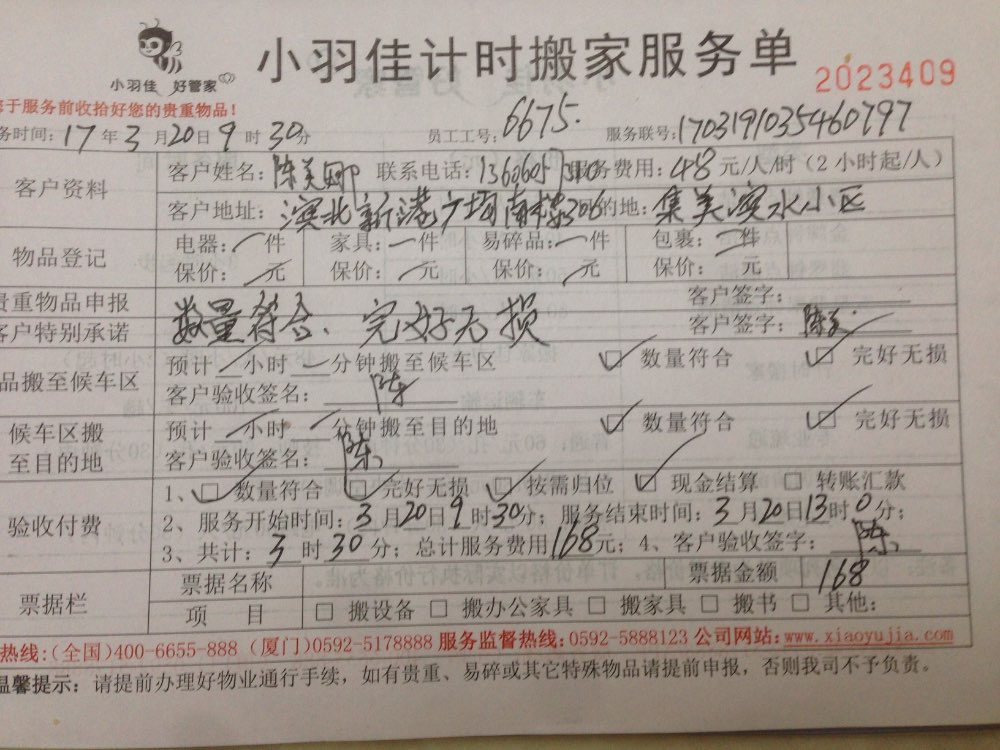 小羽佳 好管家
小羽佳计时搬家服务单
2023409
于服务前收拾好您的贵重物品！
务时间：17年3月20日9时30分 员工工号：6675. 服务联号：1703191035460797
客户资料
客户姓名：陈美娜 联系电话：服务费用：48元/人/时（2小时起/人）
客户地址：滨北新港广场南楼306 的地：集美滨水小区
物品登记
电器：一件 家具：一件 易碎品：一件 包裹：一件
保价：一元 保价：一元 保价：一元 保价：一元
贵重物品申报 客户签字：
客户特别承诺 数量符合、完好无损 客户签字：陈美
品搬至候车区
预计一小时一分钟搬至候车区 ☑ 数量符合 ☑ 完好无损
客户验收签名：陈
候车区搬至目的地
预计一小时一分钟搬至目的地 ☑ 数量符合 ☑ 完好无损
客户验收签名：陈
验收付费
1、☑ 数量符合 ☑ 完好无损 ☑ 按需归位 ☑ 现金结算 □ 转账汇款
2、服务开始时间：3月20日9时30分；服务结束时间：3月20日13时0分；
3、共计：3时30分；总计服务费用168元；4、客户验收签字：陈
票据栏
票据名称 票据金额 168
项 目 □ 搬设备 □ 搬办公家具 □ 搬家具 □ 搬书 □ 其他：
热线：(全国)400-6655-888 (厦门)0592-5178888 服务监督热线：0592-5888123 公司网站：www.xiaoyujia.com
温馨提示：请提前办理好物业通行手续，如有贵重、易碎或其它特殊物品请提前申报，否则我司不予负责。